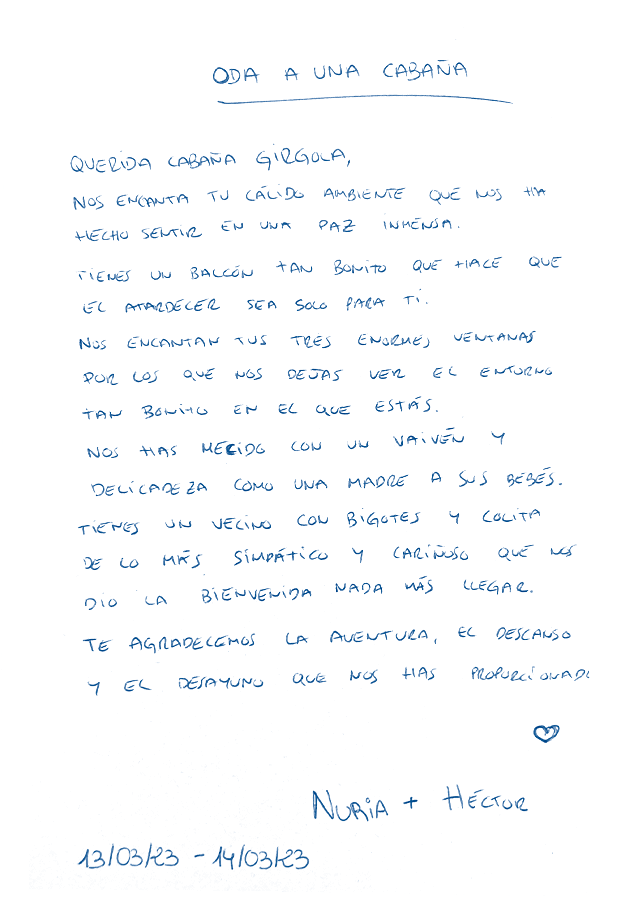 ODA A UNA CABAÑA
QUERIDA CABAÑA GIRGOLA,
NOS ENCANTA TU CÁLIDO AMBIENTE QUE NOS HA
HECHO SENTIR EN UNA PAZ INMENSA.
TIENES UN BALCÓN TAN BONITO QUE HACE QUE
EL ATARDECER SEA SOLO PARA TI.
NOS ENCANTAN TUS TRES ENORMES VENTANAS
POR LOS QUE NOS DEJAS VER EL ENTORNO
TAN BONITO EN EL QUE ESTÁS.
NOS HAS MECIDO CON UN VAIVÉN Y
DELICADEZA COMO UNA MADRE A SUS BEBÉS.
TIENES UN VECINO CON BIGOTES Y COLITA
DE LO MÁS SIMPÁTICO Y CARIÑOSO QUE NOS
DIO LA BIENVENIDA NADA MÁS LLEGAR.
TE AGRADECEMOS LA AVENTURA, EL DESCANSO
Y EL DESAYUNO QUE NOS HAS PROPORCIONADO
NURIA + HÉCTOR
13/03/23 - 14/03/23